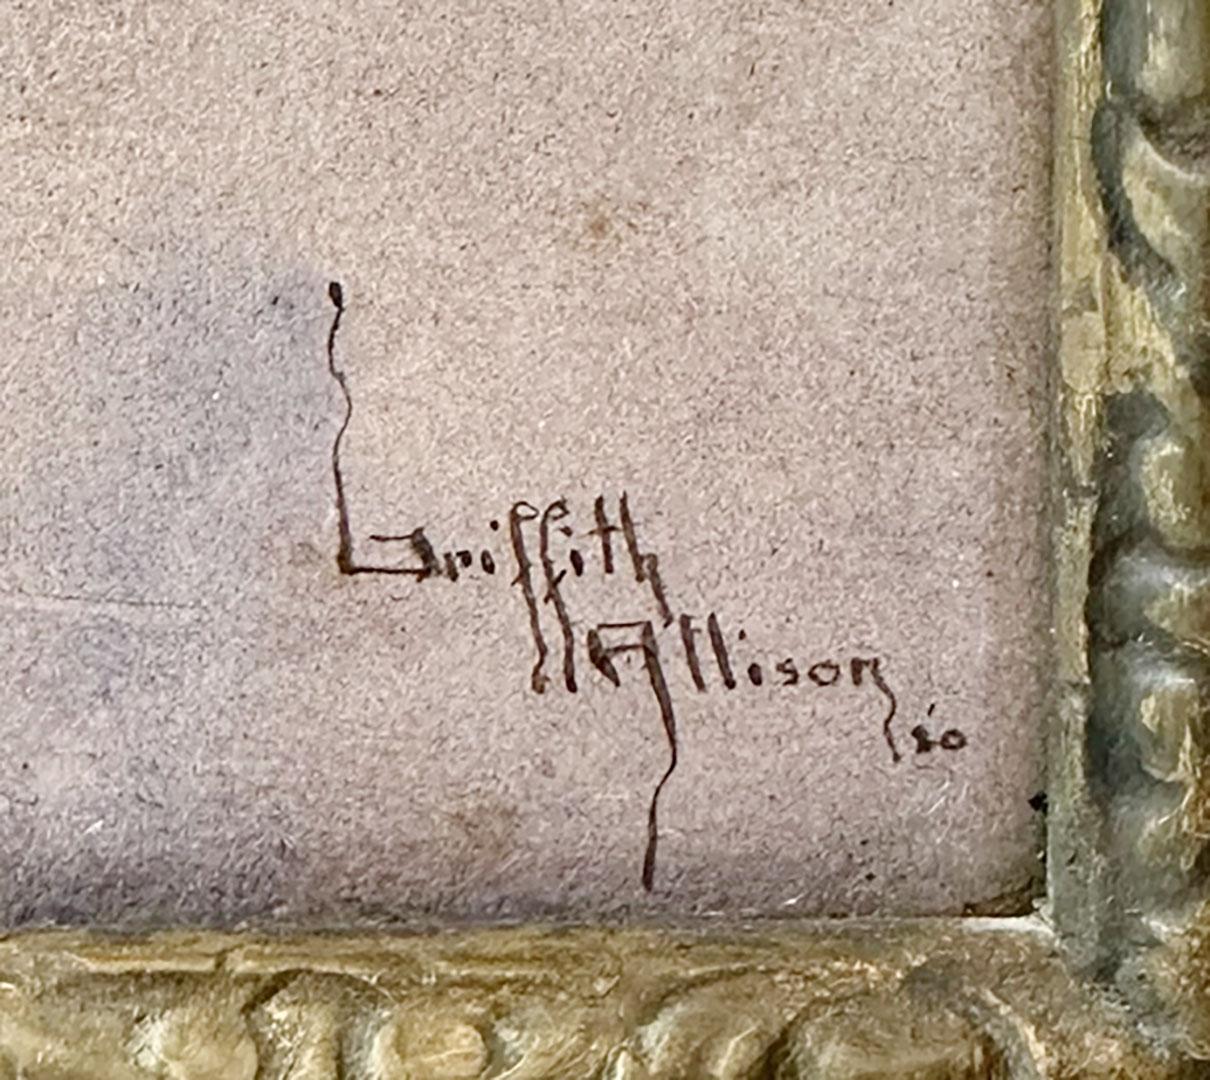 Griffith
Allison